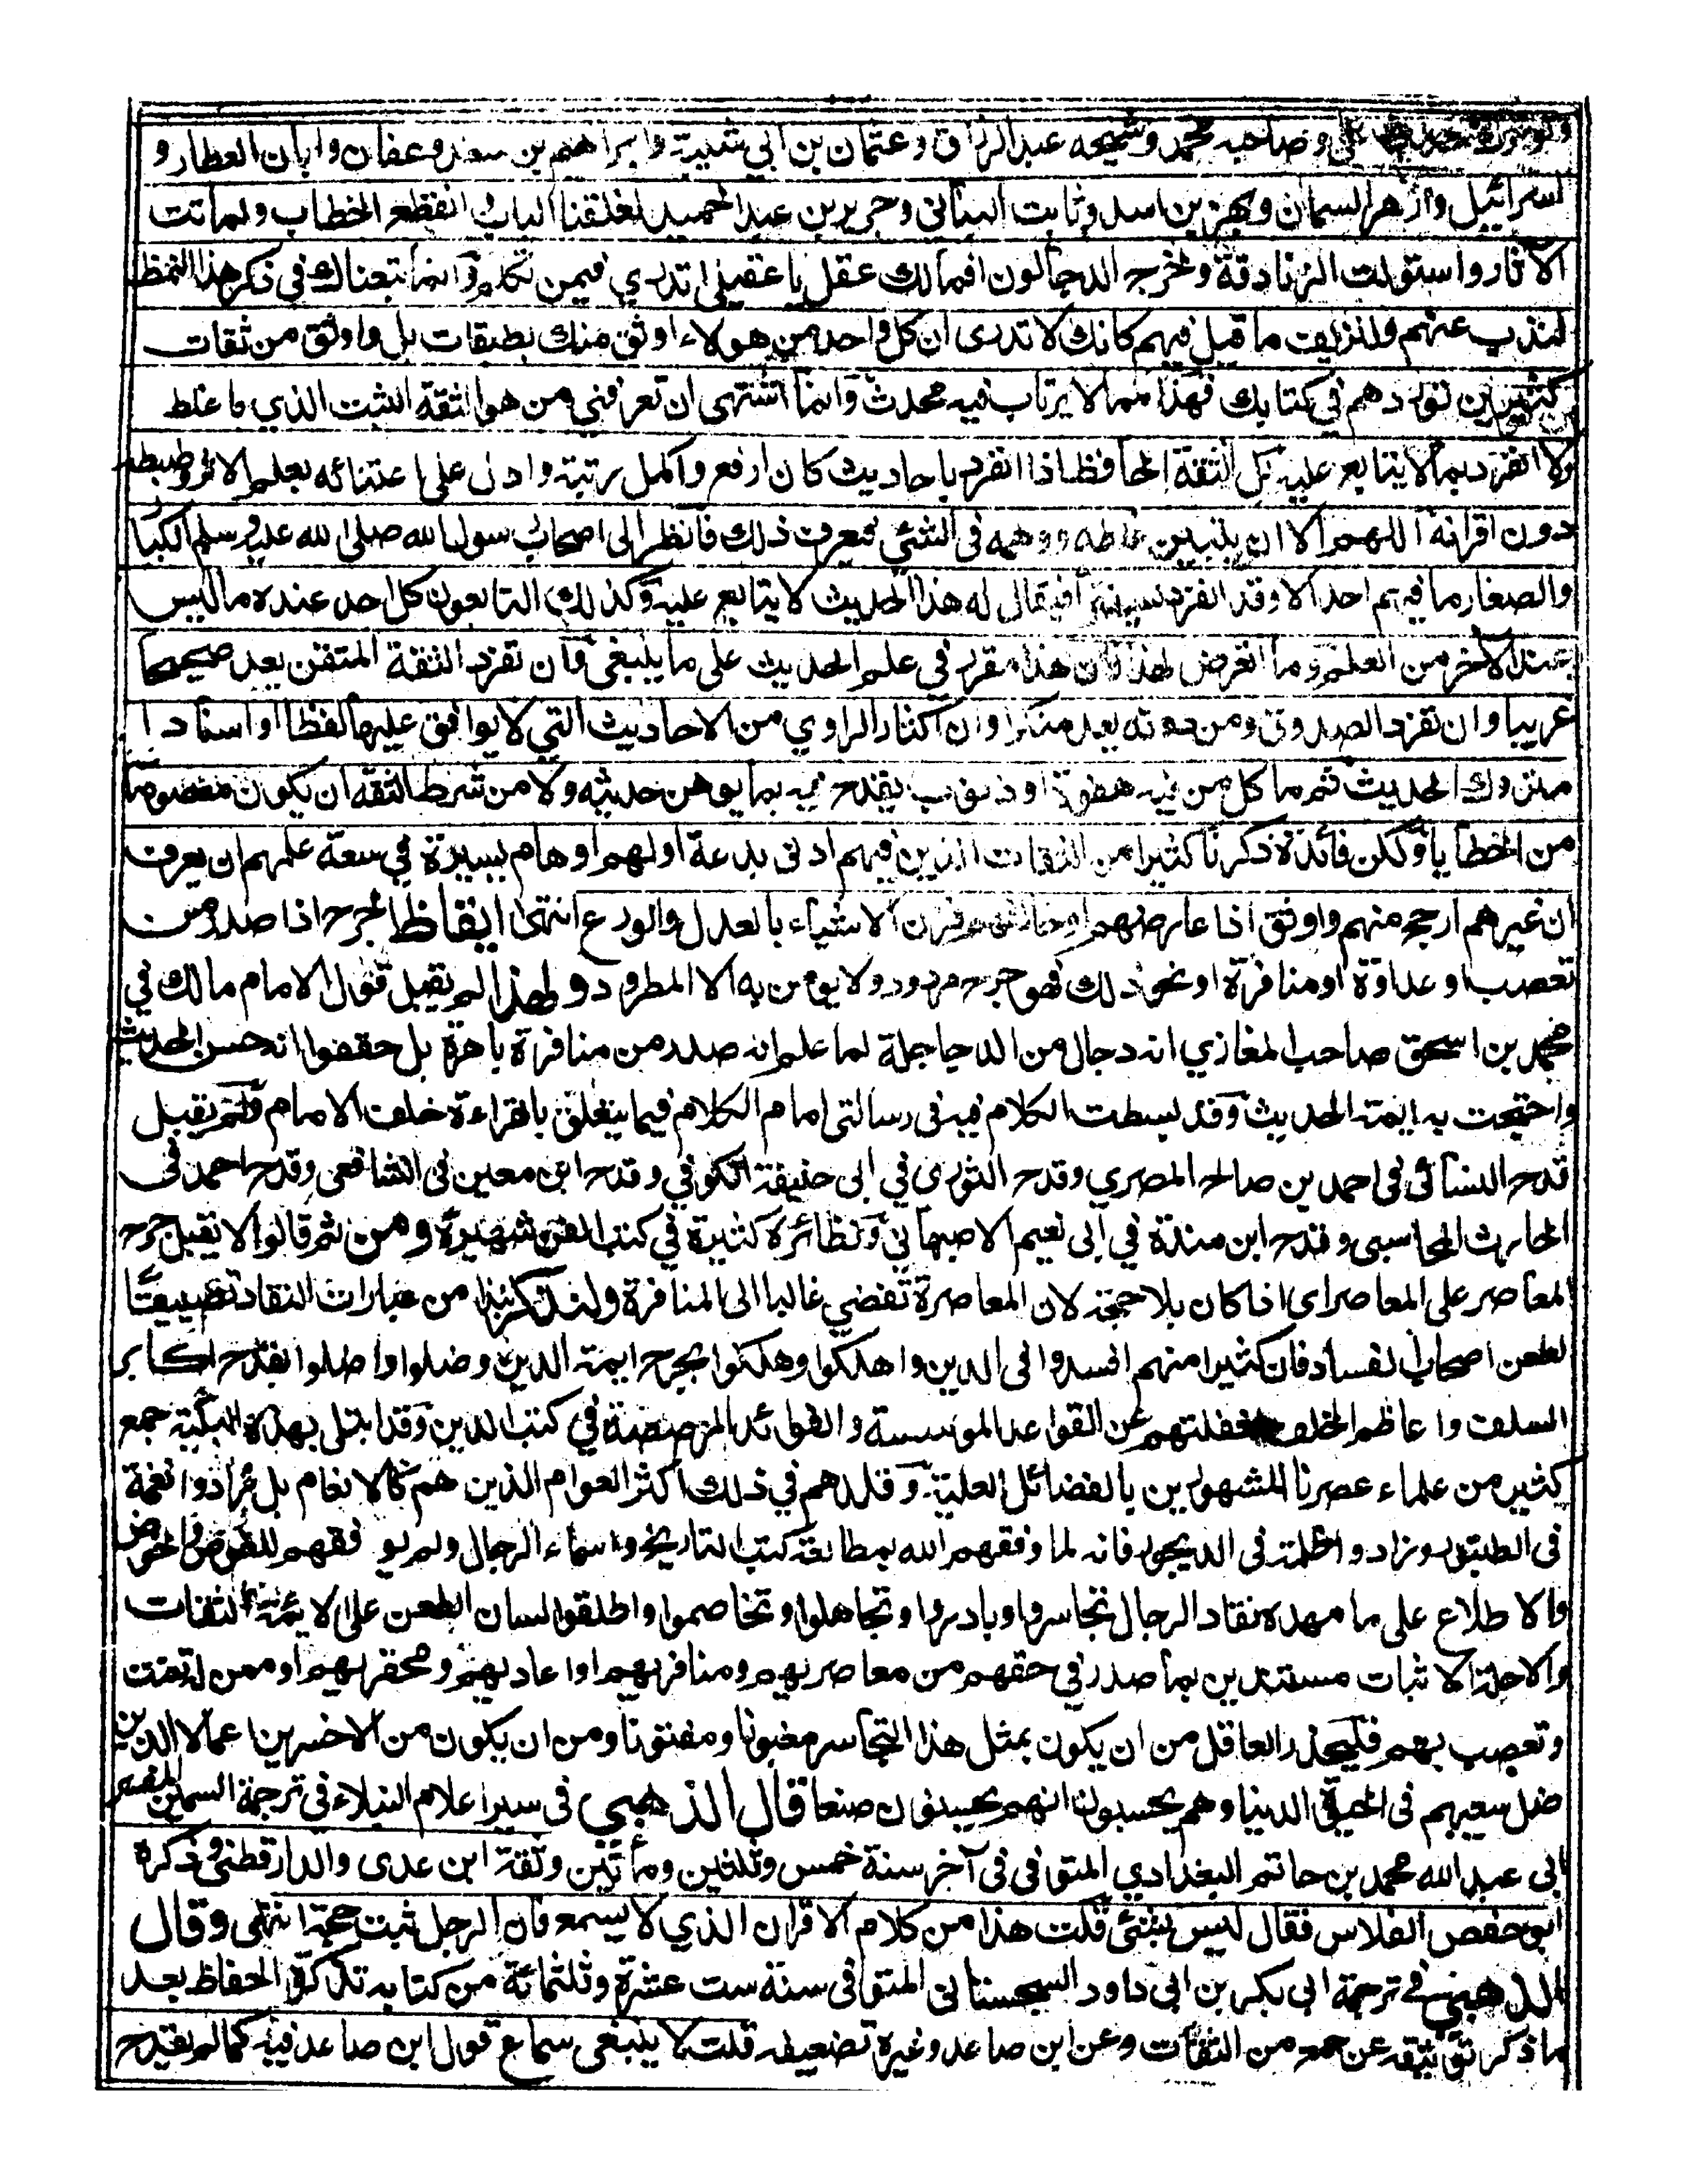 ولو ترك حديث علي وصاحبه محمد وشيخه عبد الرزاق وعثمان بن ابي شيبة وابراهيم بن سعد وعفان وابان العطار و
اسرائيل وازهر السمان وبهز بن اسد وثابت البناني وجرير بن عبد الحميد لغلقنا الباب وانقطع الخطاب ولماتت
الآثار واستولت الزنادقة ولخرج الدجالون افمالك عقل يا عقيلي اتدري فيمن تكلم وانما تبعناك في ذكر هذا النمط
لنذب عنهم ولنزيف ما قيل فيهم كانك لا تدرى ان كل واحد من هولاء اوثق منك بطبقات بل واوثق من ثقات
كثيرين لم توردهم في كتابك فهذا مما لا يرتاب فيه محدث وانما اشتهى ان تعرفني من هو الثقة الثبت الذي ما غلط
ولا انفرد بما لا يتابع عليه بل الثقة الحافظ اذا انفرد باحاديث كان ارفع واكمل رتبة وادل على اعتنائه بعلم الاثر وضبطه
دون اقرانه اللهم الا ان يتبين غلطه ووهمه في الشئي فتعرف ذلك فانظر الى اصحاب رسول الله صلى الله عليه وسلم الكبار
والصغار ما فيهم احد الا وقد انفرد بسنة افيقال له هذا الحديث لا يتابع عليه وكذلك التابعون كل احد عنده ما ليس
عند الآخر من العلم وما الغرض هذا فان هذا مقرر في علم الحديث على ما ينبغي وان تفرد الثقة المتقن يعد صحيحا
غريبا وان تفرد الصدوق ومن دونه يعد منكرا وان اكثار الراوي من الاحاديث التي لا يوافق عليها لفظا او اسنادا
متروك الحديث ثم ما كل من فيه هفوة او ذنوب يقدح فيه بما يوهن حديثه ولا من شرط الثقة ان يكون معصوما
من الخطايا ولكن فائدة ذكرنا كثيرا من الثقات الذين فيهم ادنى بدعة او لهم اوهام يسيرة في سعة علمهم ان يعرف
ان غيرهم ارجح منهم واوثق اذا عارضهم او خالفهم فزن الاشياء بالعدل والورع انتهى ايقاظ الجرح اذا صدر من
تعصب او عداوة او منافرة او نحو ذلك فهو جرح مردود ولا يومن به الا المطرود ولهذا لم يقبل قول الامام مالك في
محمد بن اسحق صاحب المغازي انه دجال من الدجاجلة لما علم انه صدر من منافرة باهرة بل حققوا انه حسن الحديث
واحتجت به ايمة الحديث وقد بسطت الكلام فيه في رسالتي امام الكلام فيما يتعلق بالقراءة خلف الامام ولم يقبل
قدح النسائي في احمد بن صالح المصري وقدح الثوري في ابي حنيفة الكوفي وقدح ابن معين في الشافعي وقدح احمد في
الحارث المحاسبي وقدح ابن مندة في ابي نعيم الاصبهاني ونظائره كثيرة في كتب الفن شهيرة ومن ثم قالوا لا يقبل جرح
المعاصر على المعاصر اي اذا كان بلا حجة لان المعاصرة تفضي غالبا الى المنافرة ولنذكر نبذا من عبارات النقاد تضييقا
لطعن اصحاب الفساد فان كثيرا منهم افسدوا في الدين واهلكوا وهلكوا بجرح ايمة الدين وضلوا واضلوا بقدح اكابر
السلف واعاظم الخلف لغفلتهم عن القواعد الموسسة والفوائد المرصصة في كتب الدين وقد ابتلي بهذه البلية جمع
كثير من علماء عصرنا المشهورين بالفضائل العلية وقلدهم في ذلك اكثر العوام الذين هم كالانعام بل زادوا نغمة
في الطنبور وزادوا ظلمة في الديجور فانه لما وفقهم الله بمطالعة كتب التاريخ واسماء الرجال ولم يو فقهم للغوض والخوض
والاطلاع على ما مهده نقاد الرجال تجاسروا وبادروا وتجاهلوا وتخاصموا واطلقوا لسان الطعن على الائمة الثقات
والاجلة الاثبات مستندين بما صدر في حقهم من معاصريهم ومنافريهم او اعاديهم ومحقريهم او ممن تعنت
وتعصب بهم فليحذر العاقل من ان يكون بمثل هذا التجاسر مغبونا ومفتونا ومن ان يكون من الاخسرين اعمالا الذين
ضل سعيهم في الحيوة الدنيا وهم يحسبون انهم يحسنون صنعا قال الذهبي في سير اعلام النبلاء في ترجمة السمين المفسر
ابي عبد الله محمد بن حاتم البغدادي المتوفى في آخر سنة خمس وثلثين ومأتين وثقة ابن عدى والدارقطني وذكره
ابو حفص الفلاس فقال ليس بشئي قلت هذا من كلام الاقران الذي لا يسمع فان الرجل ثبت حجة انتهى وقال
الذهبي في ترجمة ابي بكر بن ابي داود السجستاني المتوفى سنة ست عشرة وثلثمائة من كتابه تذكرة الحفاظ بعد
ما ذكر توثيقه عن جمع من الثقات وعن ابن صاعد وغيره تضعيفه قلت لا ينبغي سماع قول ابن صاعد فيه كما لم يقدح